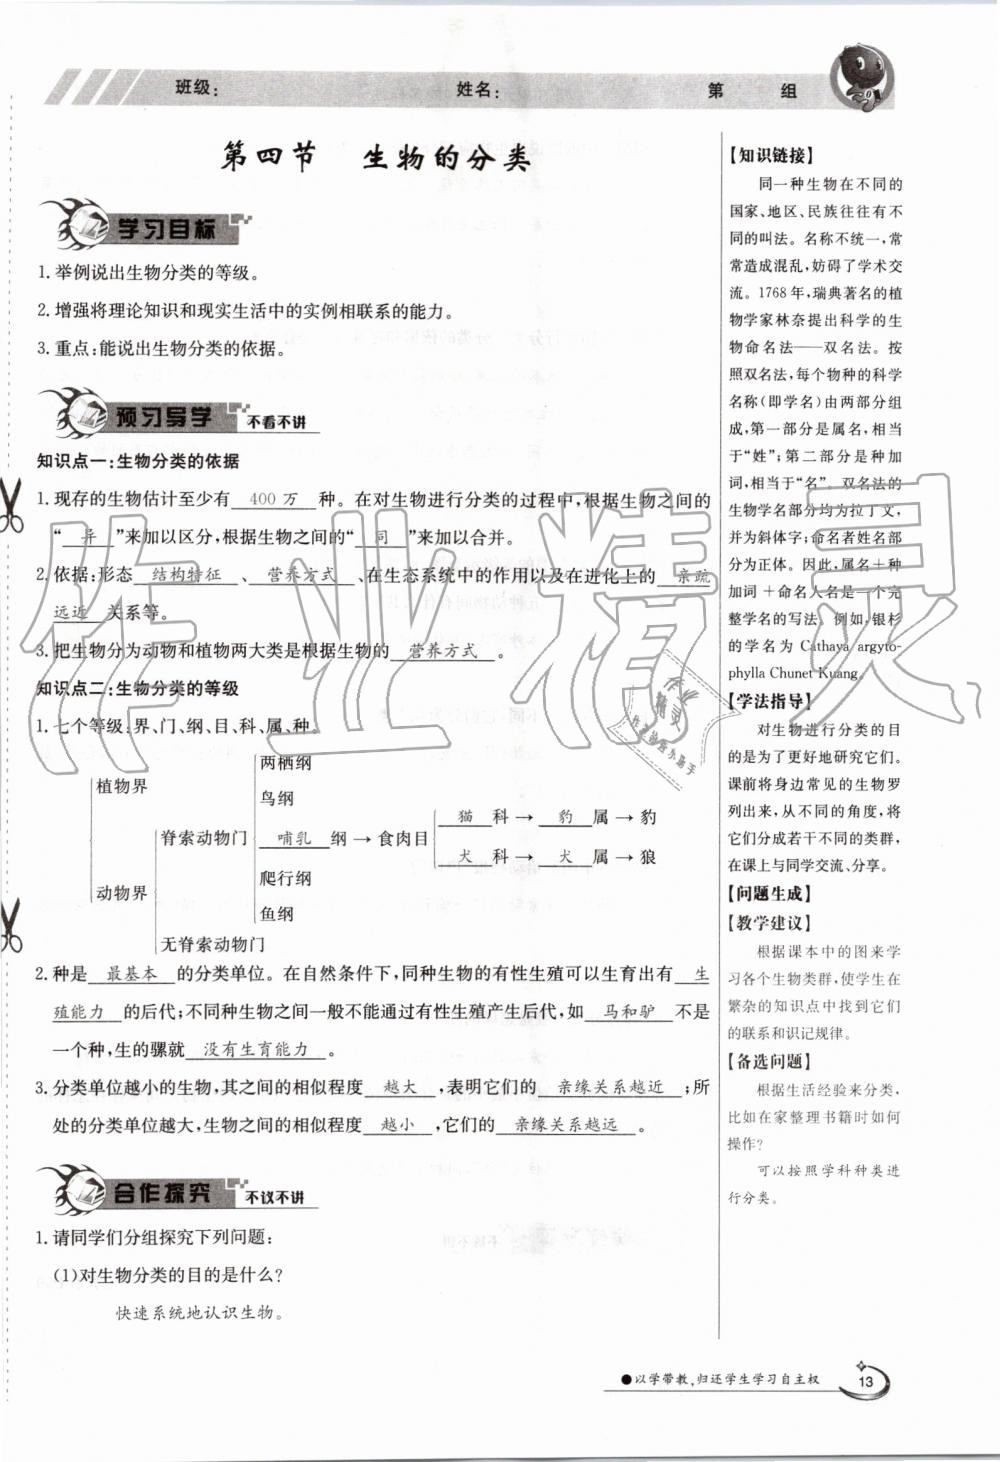 班级:　姓名:　第　组
第四节　生物的分类
学习目标
1. 举例说出生物分类的等级。
2. 增强将理论知识和现实生活中的实例相联系的能力。
3. 重点:能说出生物分类的依据。
预习导学 不看不讲
知识点一:生物分类的依据
1. 现存的生物估计至少有 400万 种。在对生物进行分类的过程中,根据生物之间的
“ 异 ”来加以区分,根据生物之间的“ 同 ”来加以合并。
2. 依据:形态 结构特征 、 营养方式 、在生态系统中的作用以及在进化上的 亲疏
远近 关系等。
3. 把生物分为动物和植物两大类是根据生物的 营养方式 。
知识点二:生物分类的等级
1. 七个等级:界、门、纲、目、科、属、种。
植物界
动物界
脊索动物门
无脊索动物门
两栖纲
鸟纲
哺乳 纲 → 食肉目
爬行纲
鱼纲
猫 科 → 豹 属 → 豹
犬 科 → 犬 属 → 狼
2. 种是 最基本 的分类单位。在自然条件下,同种生物的有性生殖可以生育出有 生
殖能力 的后代;不同种生物之间一般不能通过有性生殖产生后代,如 马和驴 不是
一个种,生的骡就 没有生育能力 。
3. 分类单位越小的生物,其之间的相似程度 越大 ,表明它们的 亲缘关系越近 ;所
处的分类单位越大,生物之间的相似程度 越小 ,它们的 亲缘关系越远 。
合作探究 不议不讲
1. 请同学们分组探究下列问题:
(1)对生物分类的目的是什么?
快速系统地认识生物。
【知识链接】
同一种生物在不同的
国家、地区、民族往往有不
同的叫法。名称不统一,常
常造成混乱,妨碍了学术交
流。1768年,瑞典著名的植
物学家林奈提出科学的生
物命名法——双名法。按
照双名法,每个物种的科学
名称(即学名)由两部分组
成,第一部分是属名,相当
于“姓”;第二部分是种加
词,相当于“名”。双名法的
生物学名部分均为拉丁文,
并为斜体字;命名者姓名部
分为正体。因此,属名+种
加词+命名人名是一个完
整学名的写法。例如,银杉
的学名为 Cathaya argyto-
phylla Chunet Kuang。
【学法指导】
对生物进行分类的目
的是为了更好地研究它们。
课前将身边常见的生物罗
列出来,从不同的角度,将
它们分成若干不同的类群,
在课上与同学交流、分享。
【问题生成】
【教学建议】
根据课本中的图来学
习各个生物类群,使学生在
繁杂的知识点中找到它们
的联系和识记规律。
【备选问题】
根据生活经验来分类,
比如在家整理书籍时如何
操作?
可以按照学科种类进
行分类。
●以学带教,归还学生学习自主权
13
作业精灵
作业精灵